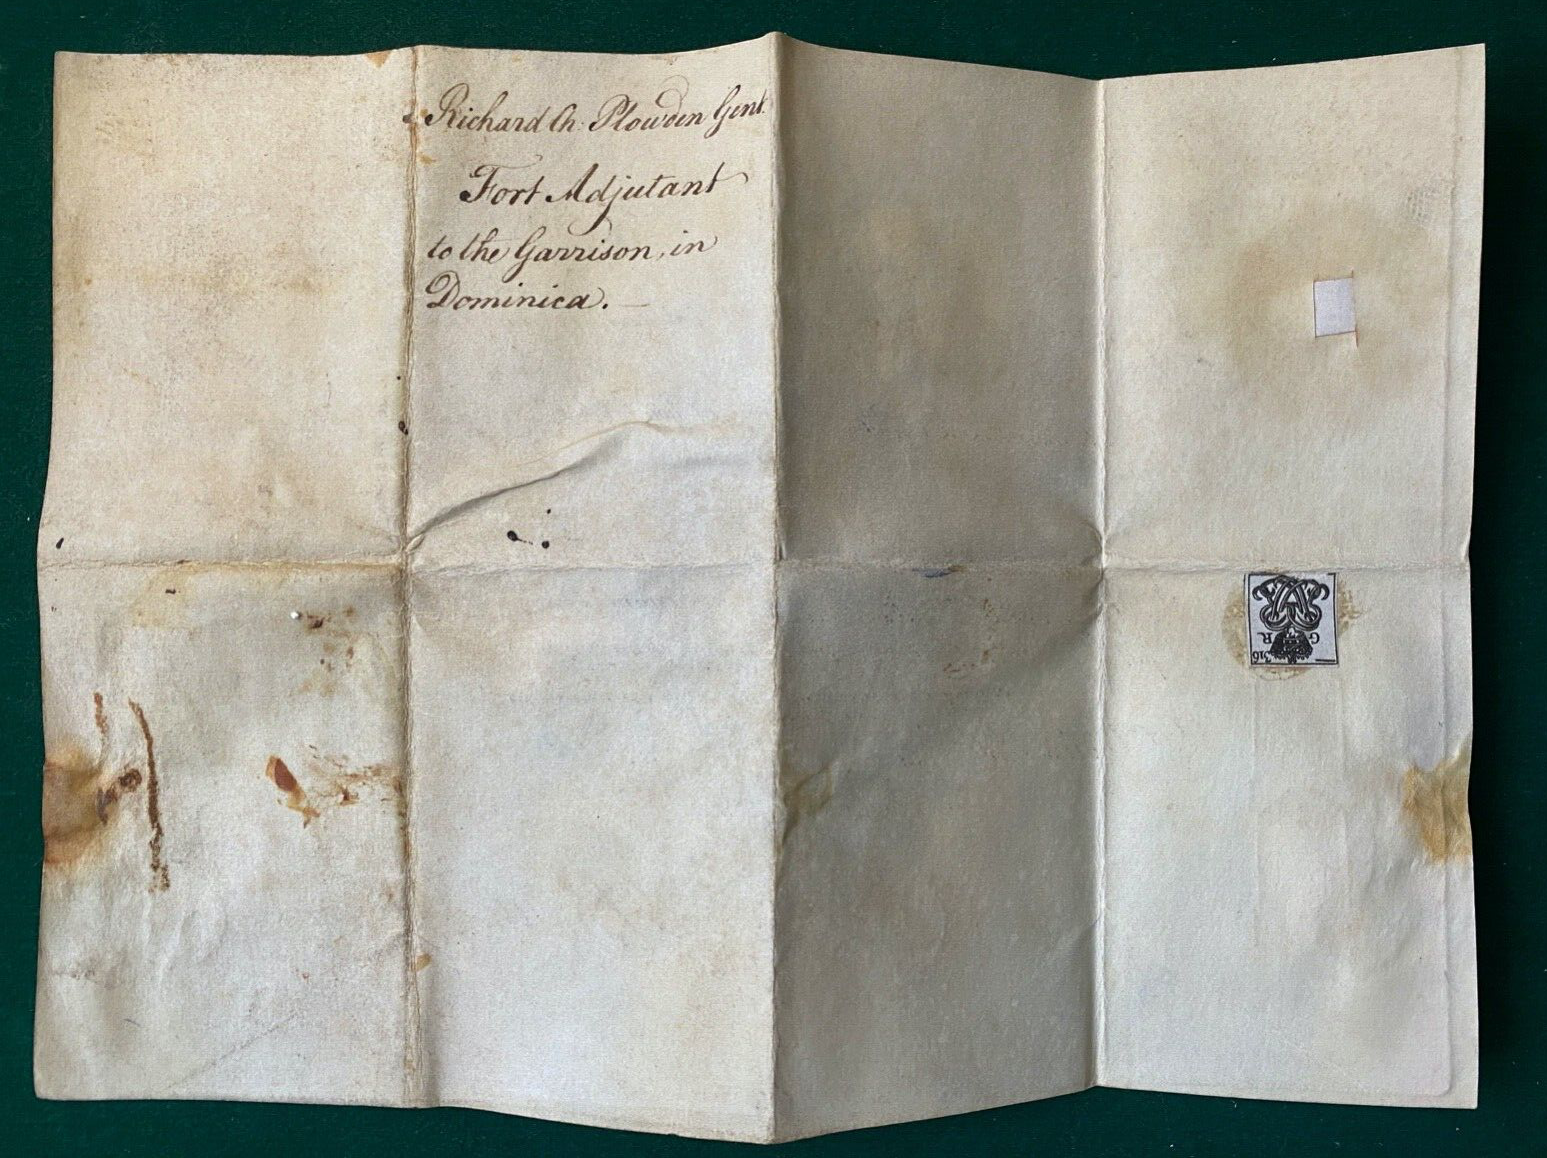 Richard Ch: Plowden Gent.
Fort Adjutant
to the Garrison, in
Dominica.
G R
316